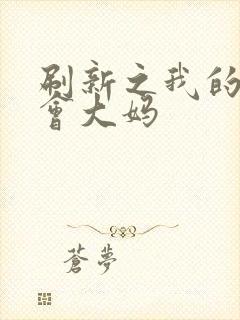 刷新之我的
會大妈
蒼夢